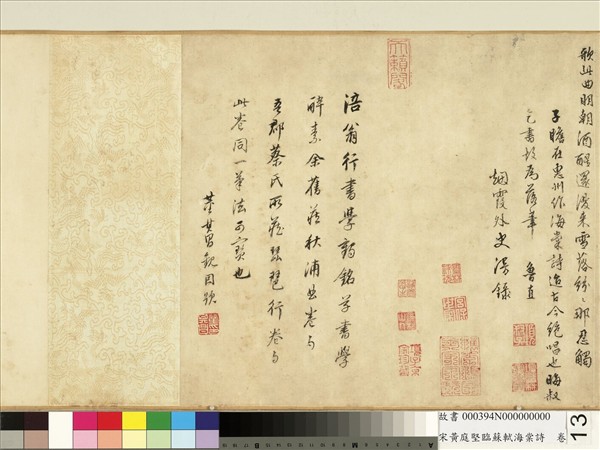 歌此曲明朝酒醒還獨來雪落紛紛那忍觸
子瞻在惠州作海棠詩造古今絕唱也晦叔
乞書故為落筆 魯直
烟霞外史湯錄
涪翁行書學鶴銘草書學
醉素余舊藏秋浦歌卷与
吾郡蔡氏所藏琵琶行卷与
此卷同一筆法可寶也
董其昌觀因題
天籟閣
故書 000394N000000000
宋黃庭堅臨蘇軾海棠詩 卷
13